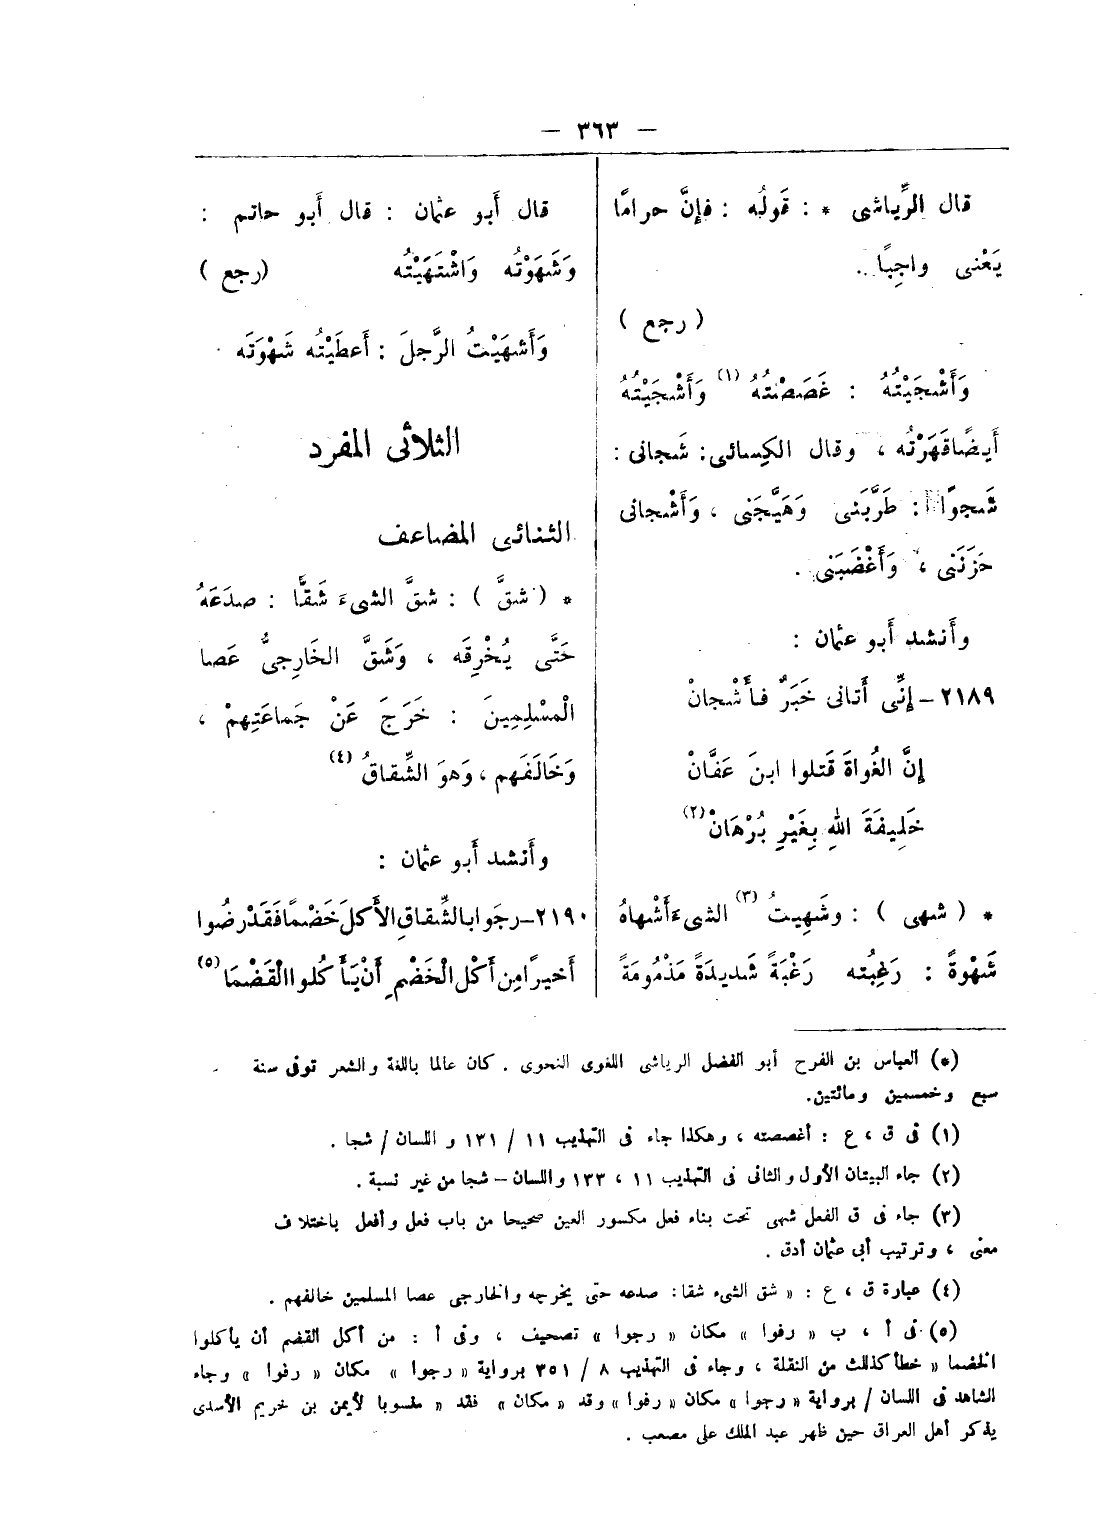 — ٣٦٣ —
قال الرِّياشى * : قَولُه : فإنَّ حرامًا
يَعْنى واجِبًا .
( رجع )
وَأَشْجَيْتُهُ : غَصَصْتُهُ (١) وَأَشْجَيْتُهُ
أَيضًا قَهَرْتُه ، وقال الكِسائى : شَجانى :
شَجوًا : طَرَّبَنى وَهَيَّجَنى ، وَأَشْجانى
حَزَنَنى ، وَأَغْضَبَنى .
وأَنشد أَبو عثمان :
٢١٨٩ – إنِّى أَتانى خَبَرٌ فأَشْجانْ
إنَّ الغُواةَ قَتلوا ابنَ عَفَّانْ
خَلِيفَةَ اللهِ بِغَيْرِ بُرْهَانْ (٢)
* ( شهى ) : وشَهِيتُ (٣) الشىءَ أَشْهاهُ
شَهْوةً : رَغِبْته رَغْبَةً شَديدَةً مَذْمُومَةً
قال أَبو عثمان : قال أَبو حاتم :
وَشَهَوْتُه وَاشْتَهَيْتُه (رجع )
وَأَشهَيْتُ الرَّجلَ : أَعطَيْتُه شَهْوَتَه .
الثلاثى المفرد
الثنائى المضاعف
* ( شقَّ ) : شقَّ الشىءَ شَقًّا : صدَعَهُ
حَتَّى يُخْرِقَه ، وَشَقَّ الخَارِجىُّ عَصا
الْمسْلِمِينَ : خَرَجَ عَنْ جَماعَتِهِمْ ،
وَخَالَفَهم ، وَهوَ الشِّقاقُ (٤)
وأَنشد أَبو عثمان :
٢١٩٠–رجَوا بالشِّقاقِ الأَكلَ خَضْمًا فَقَدْ رضُوا
أَخيرًا مِن أَكْلِ الْخَضْمِ أَنْ يَأْكُلوا الْقَضْمَا (٥)
(*) العباس بن الفرح أبو الفضل الرياشى اللغوى النحوى . كان عالما باللغة والشعر توفى سنة
سبع وخمسين ومائتين.
(١) فى ق ، ع : أغصصته ، وهكذا جاء فى التهذيب ١١ / ١٣١ و اللسان / شجا .
(٢) جاء البيتان الأول والثانى فى التهذيب ١١ ، ١٣٣ واللسان – شجا من غير نسبة .
(٣) جاء فى ق الفعل شهى تحت بناء فعل مكسور العين صحيحا من باب فعل وأفعل باختلاف
معنى ، وترتيب أبى عثمان أدق .
(٤) عبارة ق ، ع : « شق الشىء شقا : صدعه حتى يخرجه والخارجى عصا المسلمين خالفهم .
(٥) فى أ ، ب « رفوا » مكان « رجوا » تصحيف ، وفى أ : من أكل القضم أن يأكلوا
الخضما « خطأ كذلك من النقلة ، وجاء فى التهذيب ٨ / ٣٥١ برواية « رجوا » مكان « رفوا » وجاء
الشاهد فى اللسان / برواية « رجوا » مكان « رفوا » وقد « مكان » فقد « منسوبا لأيمن بن خريم الأسدى
يذكر أهل العراق حين ظهر عبد الملك على مصعب .